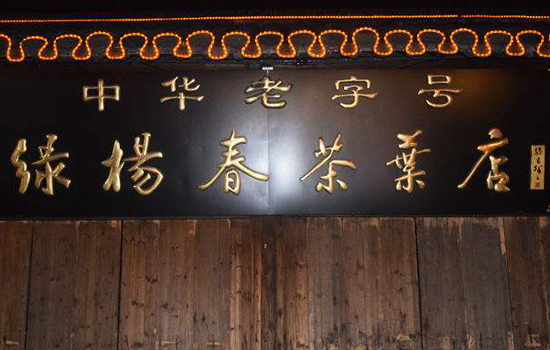 中华老字号
绿杨春茶葉店